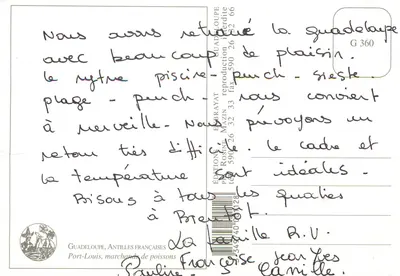 Nous avons retrouvé la guadeloupe
avec beaucoup de plaisir.
le rytme piscine - punch - sieste
plage - punch - nous convient
à merveille. Nous prévoyons un
retour très difficile. le cadre et
la température sont idéales.
Bisous à tous les quatres
à Bientôt.
La famille R.V.
Françoise Jean Yves
Pauline Camille
G 360
GUADELOUPE, ANTILLES FRANÇAISES
Port-Louis, marchands de poissons
GUADELOUPE
reproduction interdite